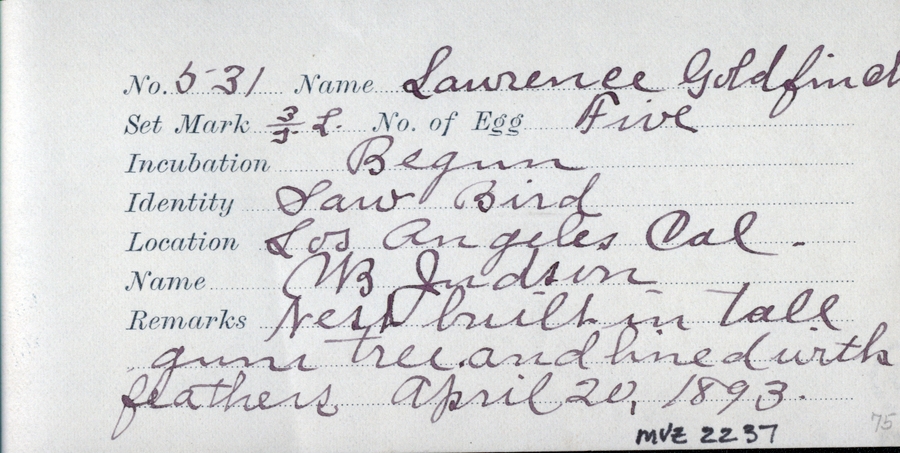 No. 531 Name Lawrence Goldfinch
Set Mark 3/5 L. No. of Egg Five
Incubation Begun
Identity Saw Bird
Location Los Angeles Cal.
Name WB Judson
Remarks Nest built in tall
gum tree and lined with
feathers April 20, 1893.
MVZ 2237
75